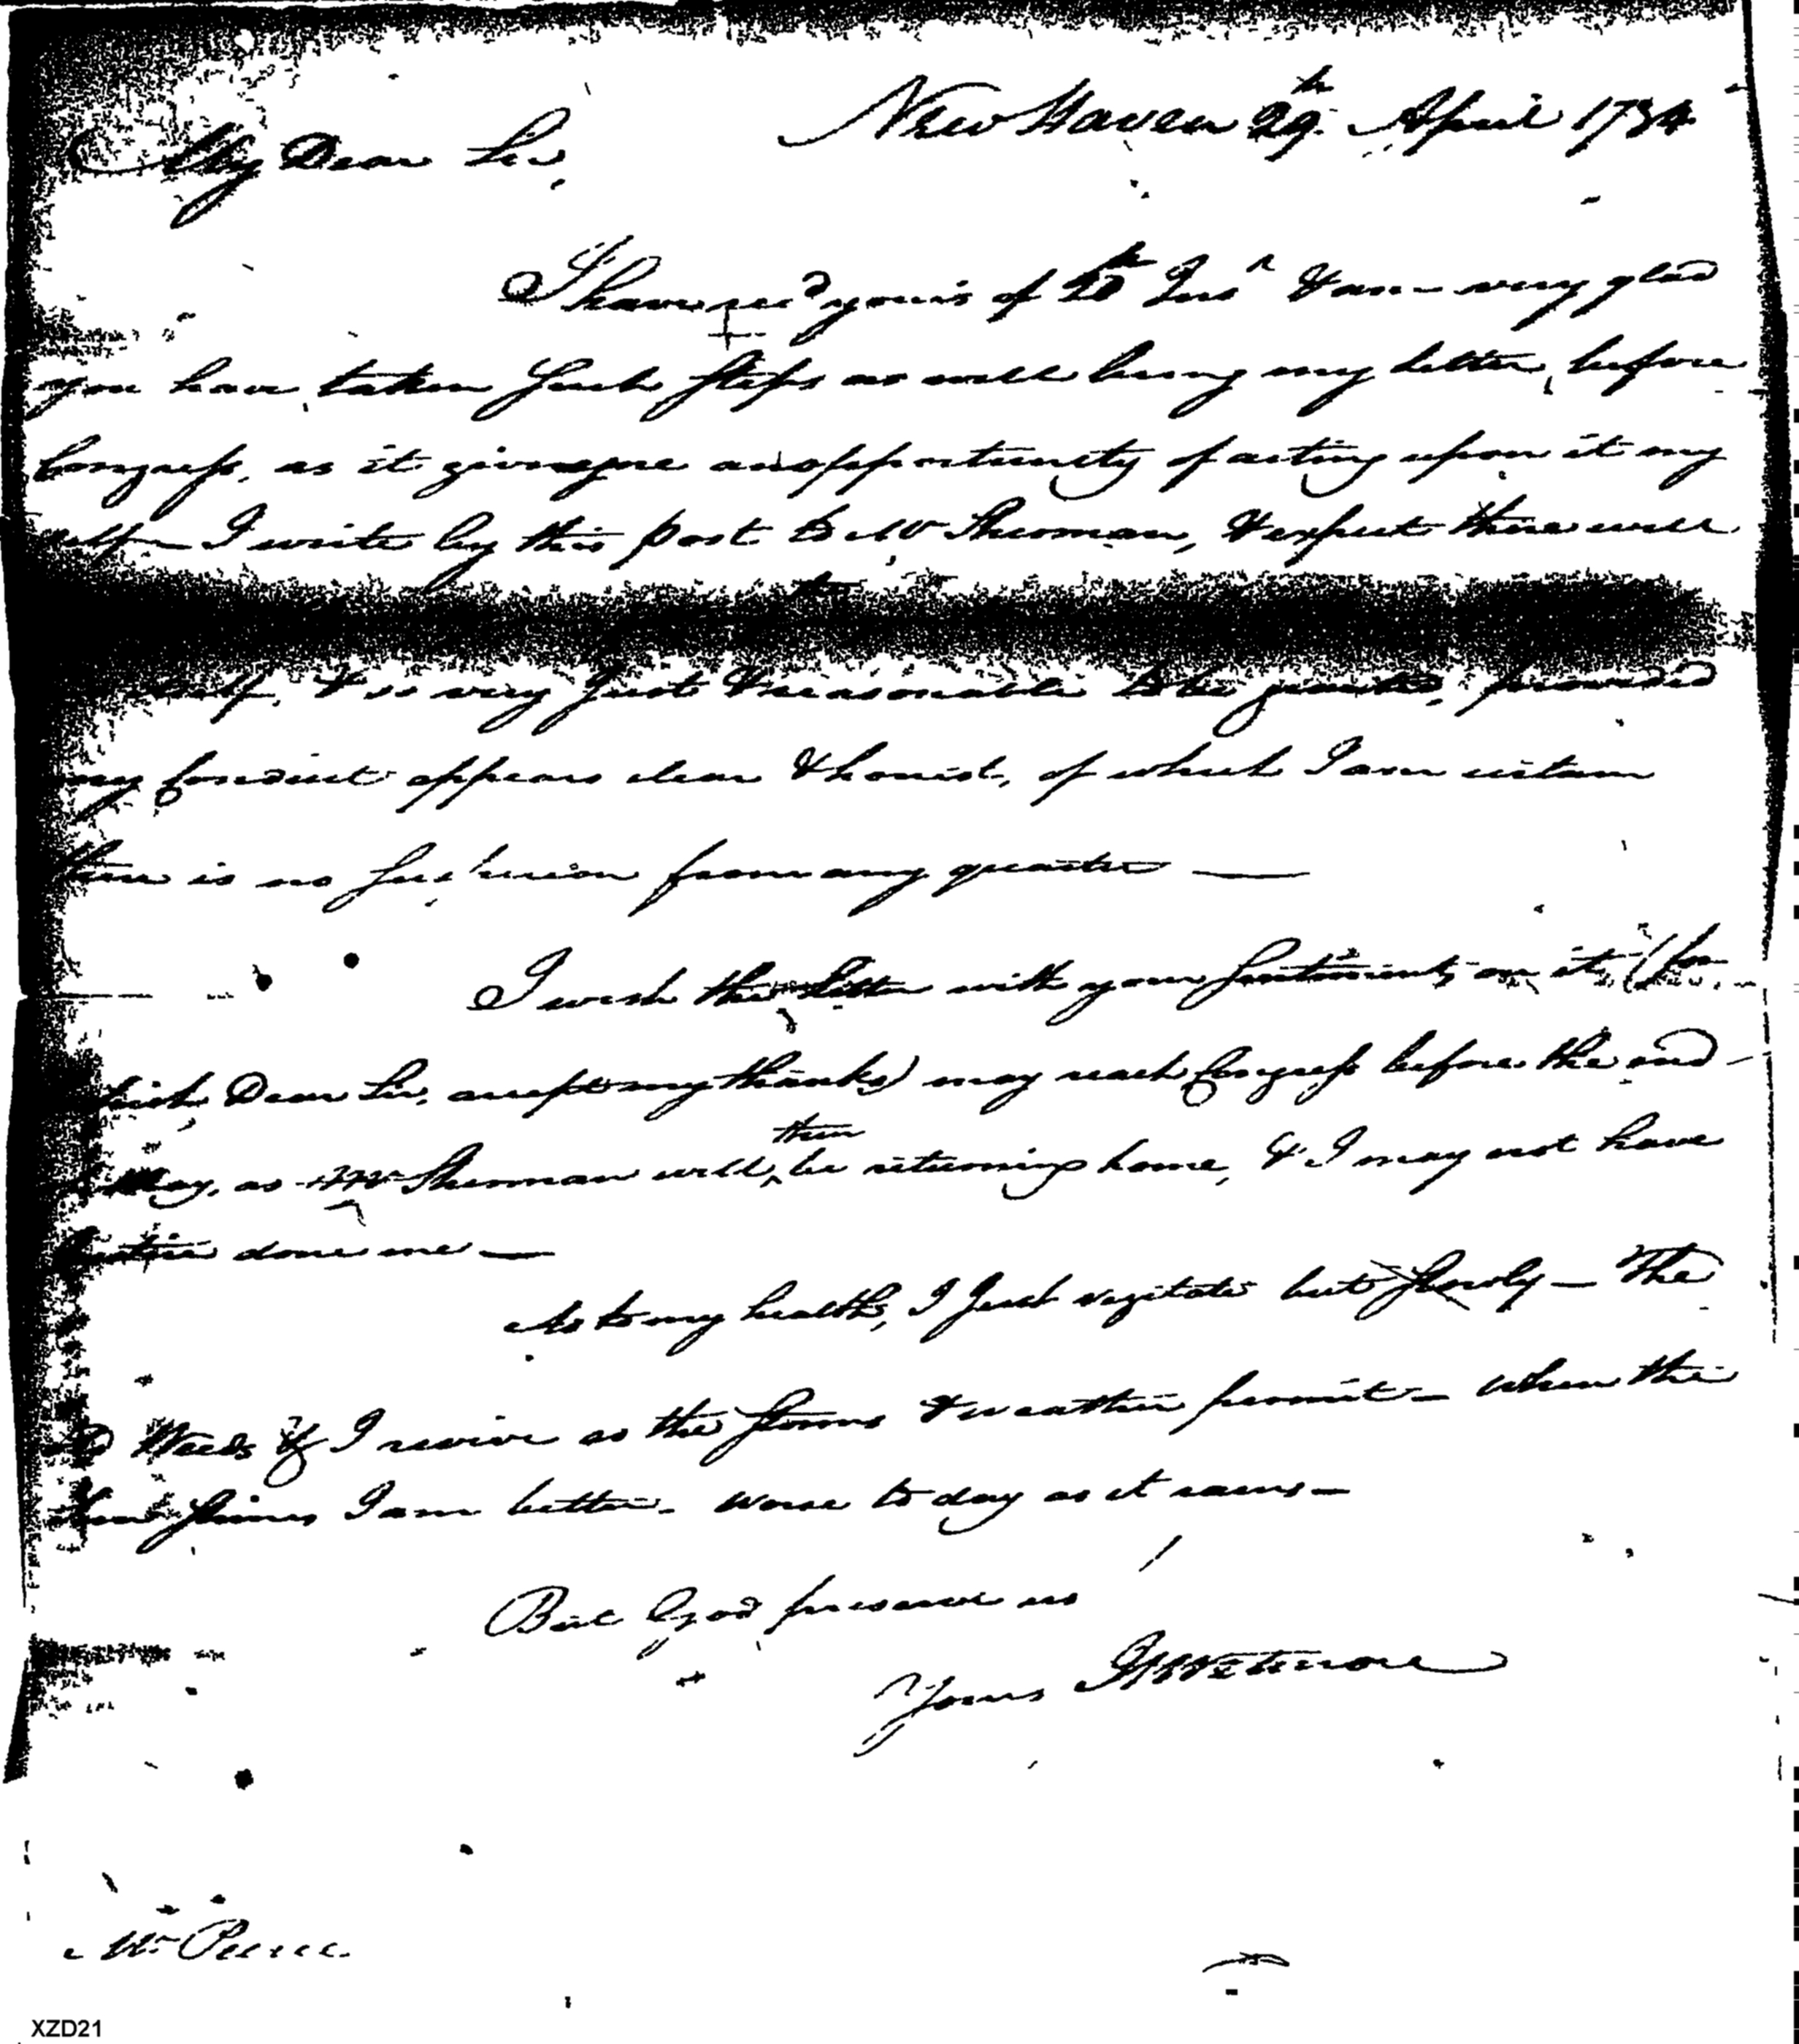 New Haven 29th April 1784
My Dear Sir,
I have recd yours of Inst & am very glad
you have taken such steps as will bring my letter before
Congress, as it gives me an opportunity of acting upon it my
self — I write by this post to Mr Sherman, & expect there will
self, & is very just & reasonable to be granted, provided
my conduct appears clear & honest, of which I am certain
there is no suspicion from any quarter —
I wish the letter with your sentiments on it, (for
which Dear Sir, accept my thanks) may reach Congress before the end
May, as Mr Sherman will then be returning home, & I may not have
Justice done me —
As to my health, I just vegitate but slowly — The
I revive as the storms & weather permit — when the
shines I am better. worse to day as it rains —
But God preserve us
Yours I Wetmore
Mr Pierce
XZD21